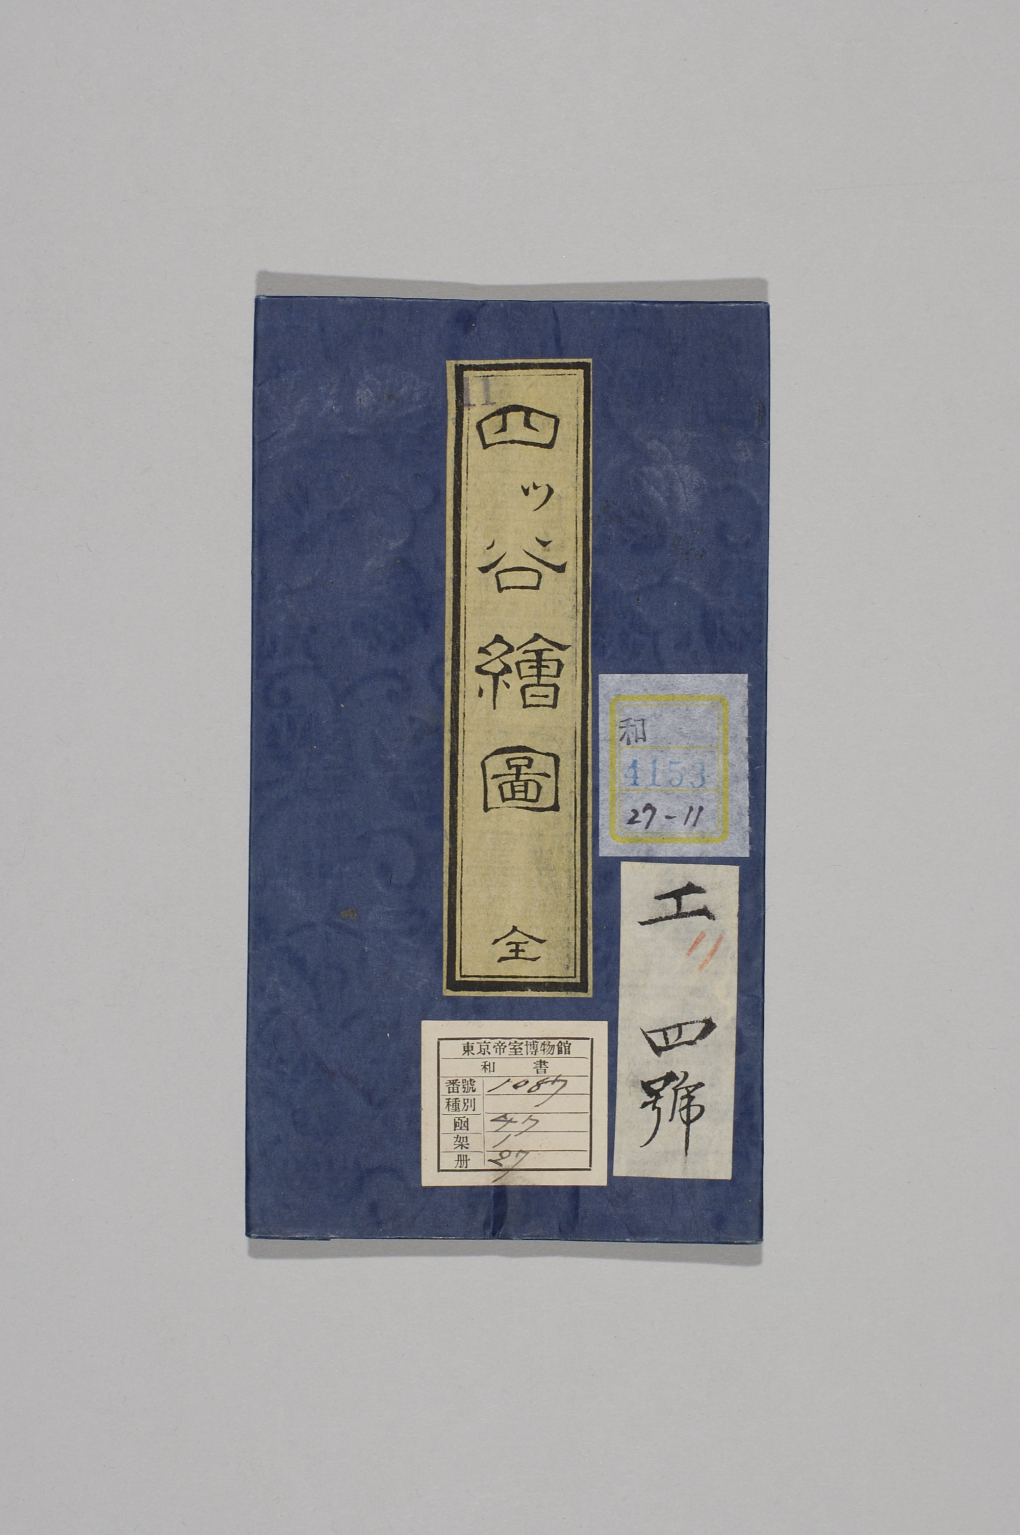 11
四ッ谷繪圖 全
和
4153
27-11
工 11
四號
東京帝室博物館
和書
番號 1087
種別
函 47
架 1
册 27